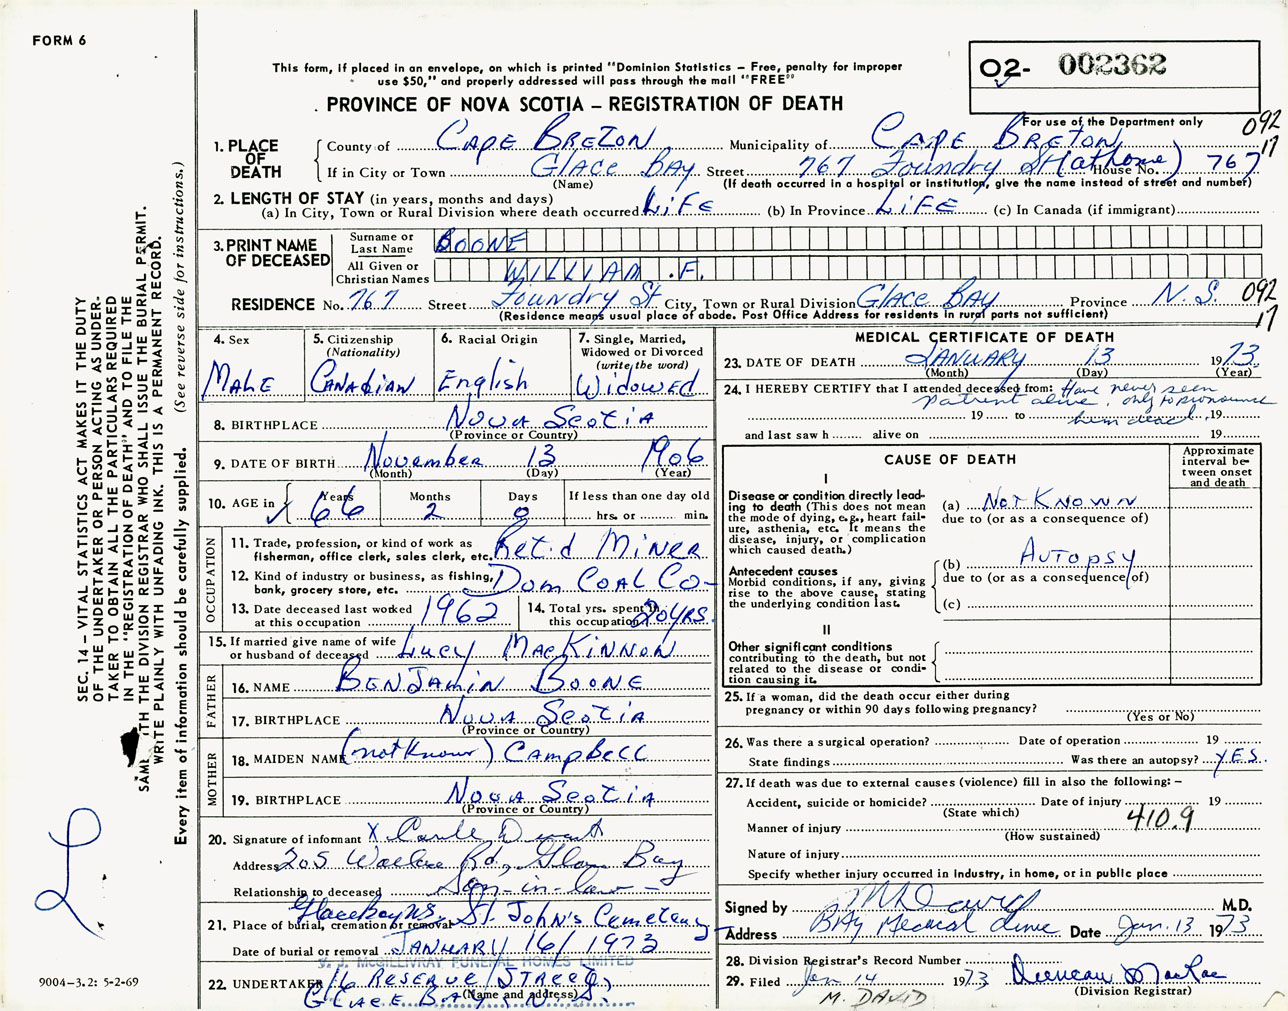 FORM 6
This form, if placed in an envelope, on which is printed "Dominion Statistics – Free, penalty for improper
use $50," and properly addressed will pass through the mail "FREE"
02- 002362
PROVINCE OF NOVA SCOTIA – REGISTRATION OF DEATH
For use of the Department only
092
17
1. PLACE OF DEATH
County of CAPE BRETON Municipality of CAPE BRETON
If in City or Town GLACE BAY Street 767 Foundry St (at home) House No. 767
(Name) (If death occurred in a hospital or institution, give the name instead of street and number)
2. LENGTH OF STAY (in years, months and days)
(a) In City, Town or Rural Division where death occurred LIFE (b) In Province LIFE (c) In Canada (if immigrant)
3. PRINT NAME OF DECEASED
Surname or Last Name BOONE
All Given or Christian Names WILLIAM .F.
RESIDENCE No. 767 Street Foundry St City, Town or Rural Division GLACE BAY Province N.S. 092
17
(Residence means usual place of abode. Post Office Address for residents in rural parts not sufficient)
4. Sex
MALE
5. Citizenship
(Nationality)
CANADIAN
6. Racial Origin
English
7. Single, Married,
Widowed or Divorced
(write the word)
WIDOWED
8. BIRTHPLACE NOVA SCOTIA
(Province or Country)
9. DATE OF BIRTH November 13 1906
(Month) (Day) (Year)
10. AGE in
Years 66
Months 2
Days 0
If less than one day old
hrs. or min.
OCCUPATION
11. Trade, profession, or kind of work as
fisherman, office clerk, sales clerk, etc. Ret.d MINER
12. Kind of industry or business, as fishing,
bank, grocery store, etc. DOM COAL CO-
13. Date deceased last worked
at this occupation 1962
14. Total yrs. spent in
this occupation 20 YRS.
15. If married give name of wife
or husband of deceased Lucy MacKINNON
FATHER
16. NAME BENJAMIN BOONE
17. BIRTHPLACE NOVA SCOTIA
(Province or Country)
MOTHER
18. MAIDEN NAME (not Known) CAMPBELL
19. BIRTHPLACE NOVA SCOTIA
(Province or Country)
20. Signature of informant X
Address 205 Wallace Rd, Glace Bay
Relationship to deceased Son-in-law -
Glace Bay NS.
21. Place of burial, cremation or removal St. John's Cemetery
Date of burial or removal JANUARY 16/1973
J. J. McGILLIVRAY FUNERAL HOMES LIMITED
22. UNDERTAKER 16 RESERVE STREET,
GLACE BAY, N.S.
(Name and address)
MEDICAL CERTIFICATE OF DEATH
23. DATE OF DEATH JANUARY 13 1973
(Month) (Day) (Year)
24. I HEREBY CERTIFY that I attended deceased from: Have never seen
patient alive, only to pronounce
19 to him dead, 19
and last saw h alive on 19
CAUSE OF DEATH
Approximate
interval be-
tween onset
and death
I
Disease or condition directly lead-
ing to death (This does not mean
the mode of dying, e.g., heart fail-
ure, asthenia, etc. It means the
disease, injury, or complication
which caused death.)
(a) NOT KNOWN
due to (or as a consequence of)
Antecedent causes
Morbid conditions, if any, giving
rise to the above cause, stating
the underlying condition last.
(b) AUTOPSY
due to (or as a consequence of)
(c)
II
Other significant conditions
contributing to the death, but not
related to the disease or condi-
tion causing it.
25. If a woman, did the death occur either during
pregnancy or within 90 days following pregnancy?
(Yes or No)
26. Was there a surgical operation? Date of operation 19
State findings Was there an autopsy? YES.
27. If death was due to external causes (violence) fill in also the following: –
Accident, suicide or homicide? Date of injury 19
(State which)
410.9
Manner of injury
(How sustained)
Nature of injury
Specify whether injury occurred in industry, in home, or in public place
Signed by M David M.D.
Address BAY Medical Clinic Date Jan. 13 1973
28. Division Registrar's Record Number
29. Filed Jan 14 1973 Duncan MacRae
(Division Registrar)
M. DAVID
SEC. 14 – VITAL STATISTICS ACT MAKES IT THE DUTY
OF THE UNDERTAKER OR PERSON ACTING AS UNDER-
TAKER TO OBTAIN ALL THE PARTICULARS REQUIRED
IN THE "REGISTRATION OF DEATH" AND TO FILE THE
SAME WITH THE DIVISION REGISTRAR WHO SHALL ISSUE THE BURIAL PERMIT.
WRITE PLAINLY WITH UNFADING INK. THIS IS A PERMANENT RECORD.
Every item of information should be carefully supplied. (See reverse side for instructions.)
9004–3.2: 5-2-69